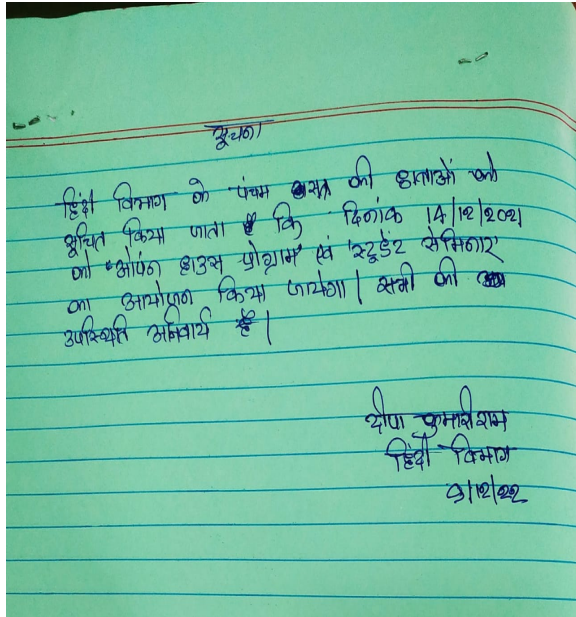 सूचना
हिंदी विभाग के पंचम सत्र की छात्राओं को
सूचित किया जाता है कि दिनांक 14/12/2021
को "ओपन हाउस प्रोग्राम" एवं 'स्टूडेंट सेमिनार'
का आयोजन किया जायेगा। सभी की
उपस्थिति अनिवार्य है।
दीपा कुमारी राम
हिंदी विभाग
9/12/22